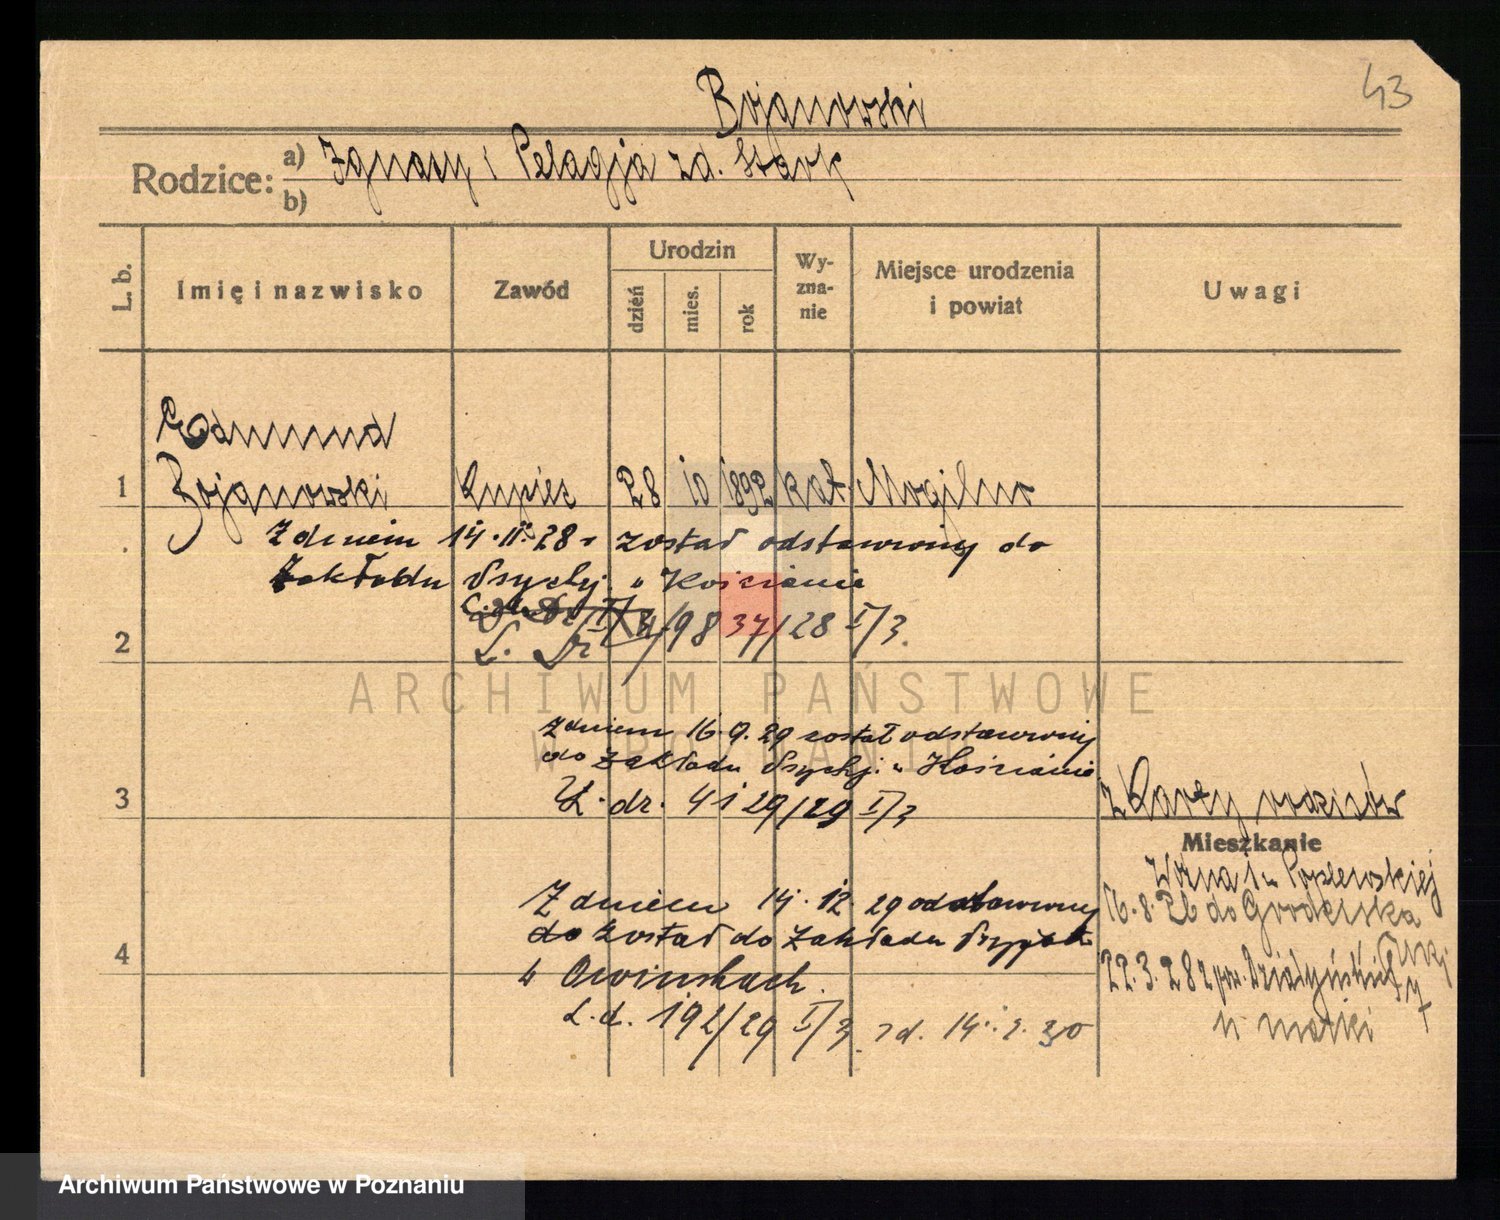 43
Bojanowski
Rodzice: a) Ignacy i Pelagja zd. Stark
b)
L. b. Imię i nazwisko Zawód Urodzin dzień mies. rok Wy-zna-nie Miejsce urodzenia i powiat Uwagi
Edmund
1 Bojanowski Kupiec 28 10 1892 kat. Mogilno
Z dniem 14.II.28 r został odstawiony do
Zakładu Psychj. w Kościanie
2 L. Dz 98 37/28 I/3.
ARCHIWUM PAŃSTWOWE
W POZNANIU
Z dniem 16.9.29 został odstawiony
do Zakładu Psychj. w Kościanie
3 L. dz. 41 29/29 I/3
z Karty rodziców
Mieszkanie
Woźna
Z dniem 14.12.29 odstawiony
16.8.26 do Grodziska
do został do Zakładu
4 w Owinskach.
22.3.28 z pow.
L.d. 192/29 I/3. zd. 14.. 30
u matki
Archiwum Państwowe w Poznaniu